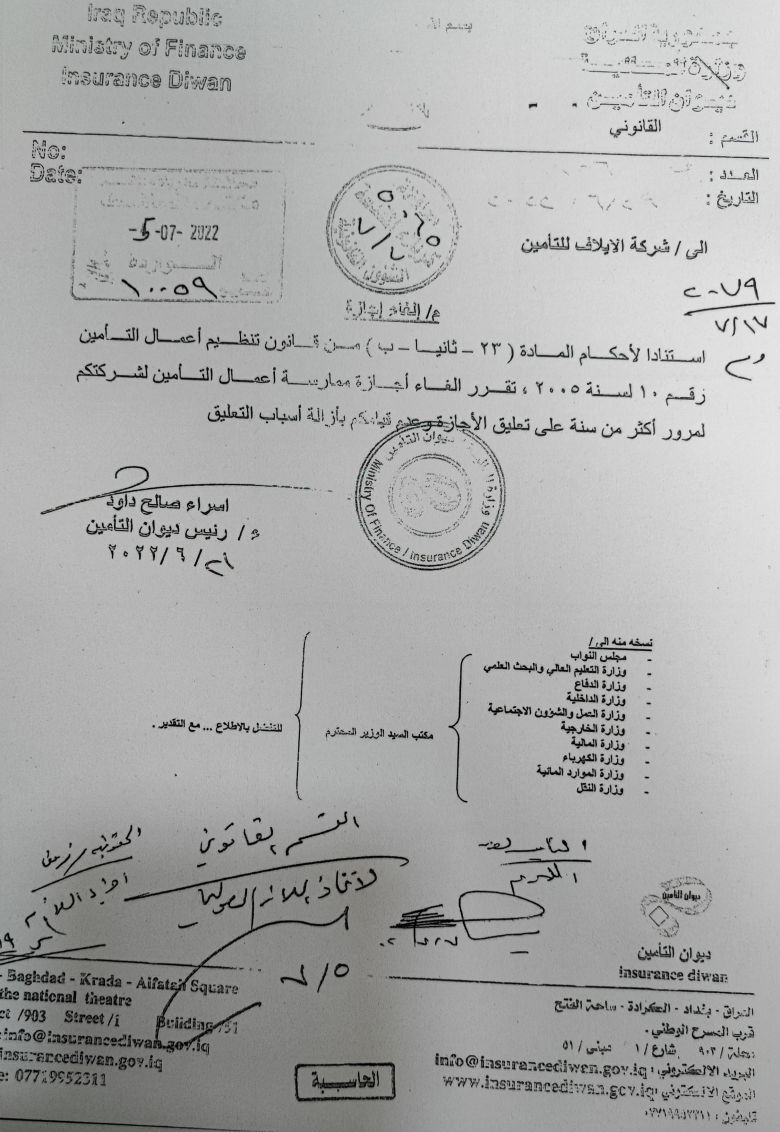 Iraq Republic
Ministry of Finance
Insurance Diwan
بسم الله
جمهورية العراق
وزارة المالية
ديوان التأمين
القسم : القانوني
No:
Date:
العدد :
التاريخ :
-5-07- 2022
الـــواردة
١٠٠٥٩
الى / شركة الايلاف للتأمين
٢٠٧٩
٧/١٧
م/ إلغاء إجازة
استنادا لأحكام المادة ( ٢٣ - ثانيا - ب ) من قانون تنظيم أعمال التأمين
رقم ١٠ لسنة ٢٠٠٥ ، تقرر الغاء أجازة ممارسة أعمال التأمين لشركتكم
لمرور أكثر من سنة على تعليق الأجازة وعدم قيامكم بأزالة أسباب التعليق
وزارة المالية / ديوان التأمين
Ministry Of Finance / Insurance Diwan
اسراء صالح داود
ء / رئيس ديوان التأمين
٢٠٢٢/٦/
نسخه منه الى /
- مجلس النواب
- وزارة التعليم العالي والبحث العلمي
- وزارة الدفاع
- وزارة الداخلية
- وزارة العمل والشؤون الاجتماعية
- وزارة الخارجية
- وزارة المالية
- وزارة الكهرباء
- وزارة الموارد المائية
- وزارة النقل
مكتب السيد الوزير المحترم
للتفضل بالاطلاع ... مع التقدير .
القسم القانوني
٧/٥
ديوان التأمين
ديوان التأمين
insurance diwan
- Baghdad - Krada - Alfatah Square
the national theatre
ct /903 Street /1 Building /51
:info@insurancediwan.gov.iq
insurancediwan.gov.iq
e: 07719952311
العراق - بغداد - الكرادة - ساحة الفتح
قرب المسرح الوطني .
محلة / ٩٠٣ شارع / ١ مبنى / ٥١
البريد الالكتروني : info@insurancediwan.gov.iq
الموقع الالكتروني : www.insurancediwan.gov.iq
تليفون : ٠٧٧١٩٩٥٢٣١١
الحاسبة